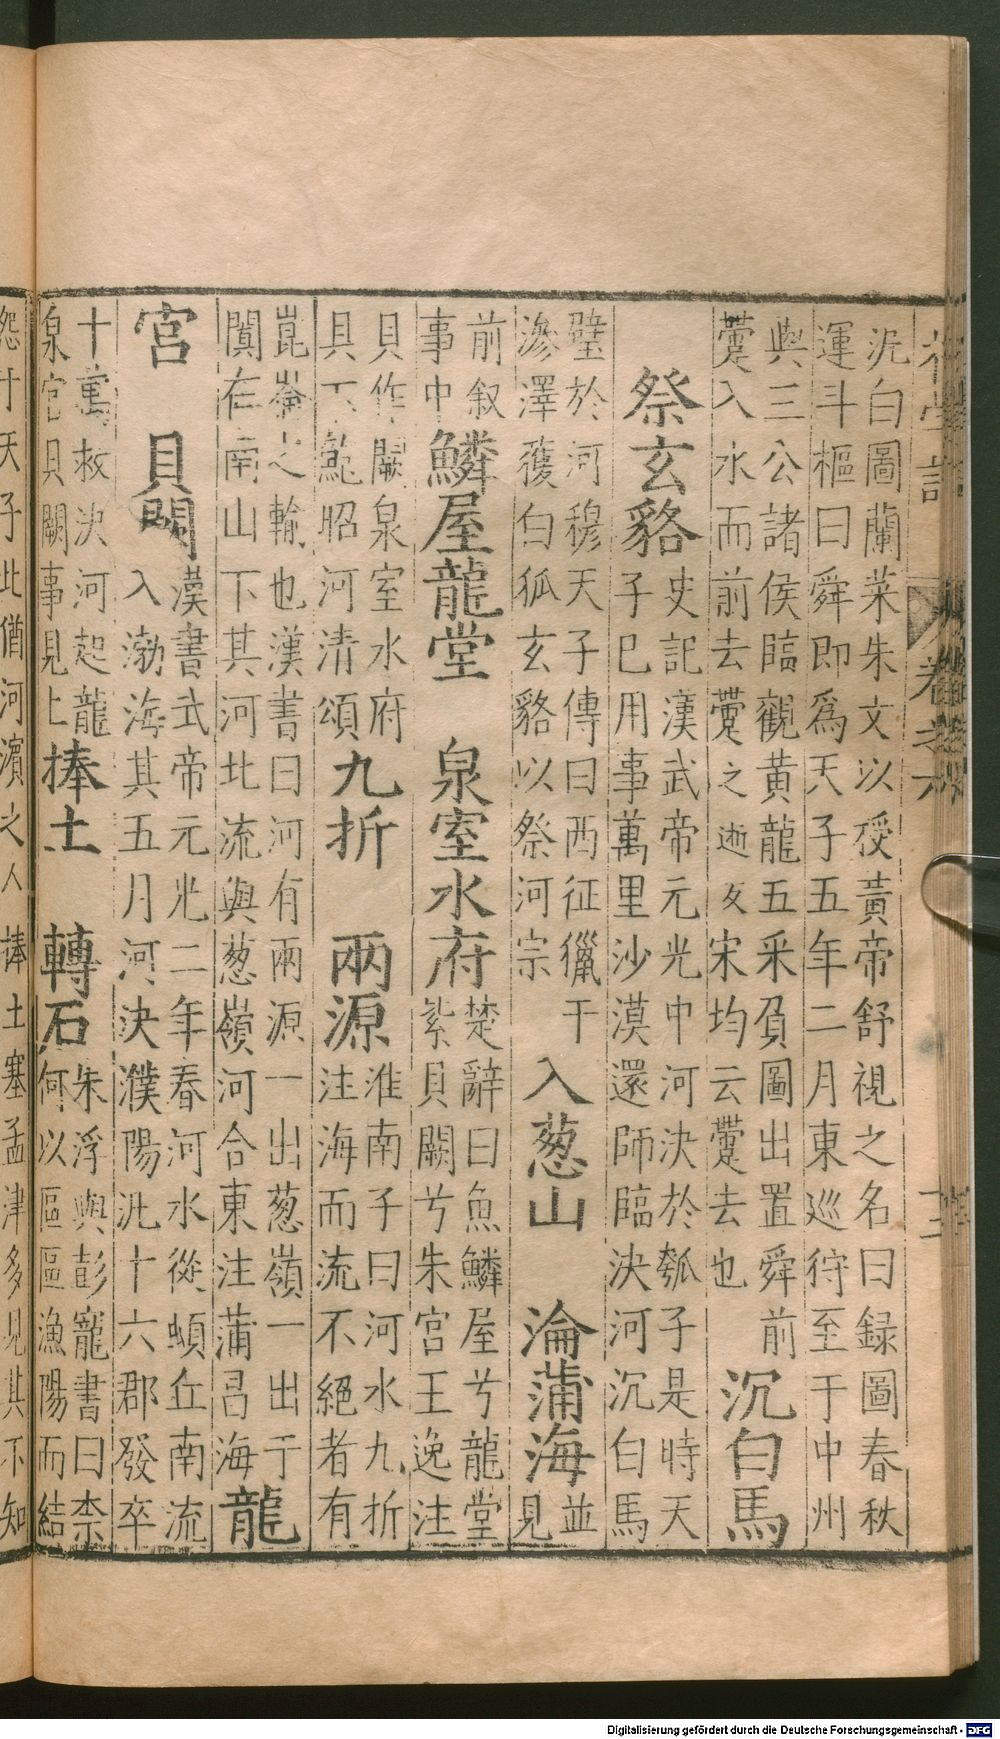 泥白圖蘭菜朱文以授黃帝舒視之名曰録圖春秋
運斗樞曰舜即爲天子五年二月東巡狩至于中州
與三公諸侯臨觀黄龍五采負圖出置舜前
薹入水而前去薹之逝友宋均云薹去也
沉白馬
祭玄貉
史記漢武帝元光中河決於瓠子是時天
子已用事萬里沙漠還師臨決河沉白馬
璧於河穆天子傳曰西征獵于
滲澤獲白狐玄貉以祭河宗
入葱山 淪蒲海
並
見
前叙
事中
鱗屋龍堂 泉室水府
楚辭曰魚鱗屋兮龍堂
紫貝闕兮朱宮王逸注
貝作闕泉室水府
具下鮑昭河清頌
九折 兩源
淮南子曰河水九折
注海而流不絕者有
崑崙之輸也漢書曰河有兩源一出葱嶺一出于
闐在南山下其河北流與葱嶺河合東注蒲昌海
龍
宮 貝闕
漢書武帝元光二年春河水從頓丘南流
入渤海其五月河決濮陽汎十六郡發卒
十萬救決河起龍
泉宮貝闕事見上
捧土 轉石
朱浮與彭寵書曰柰
何以區區漁陽而結
怨于天子此猶河濱之人捧土塞孟津多見其不知
卷之六
Digitalisierung gefördert durch die Deutsche Forschungsgemeinschaft - DFG